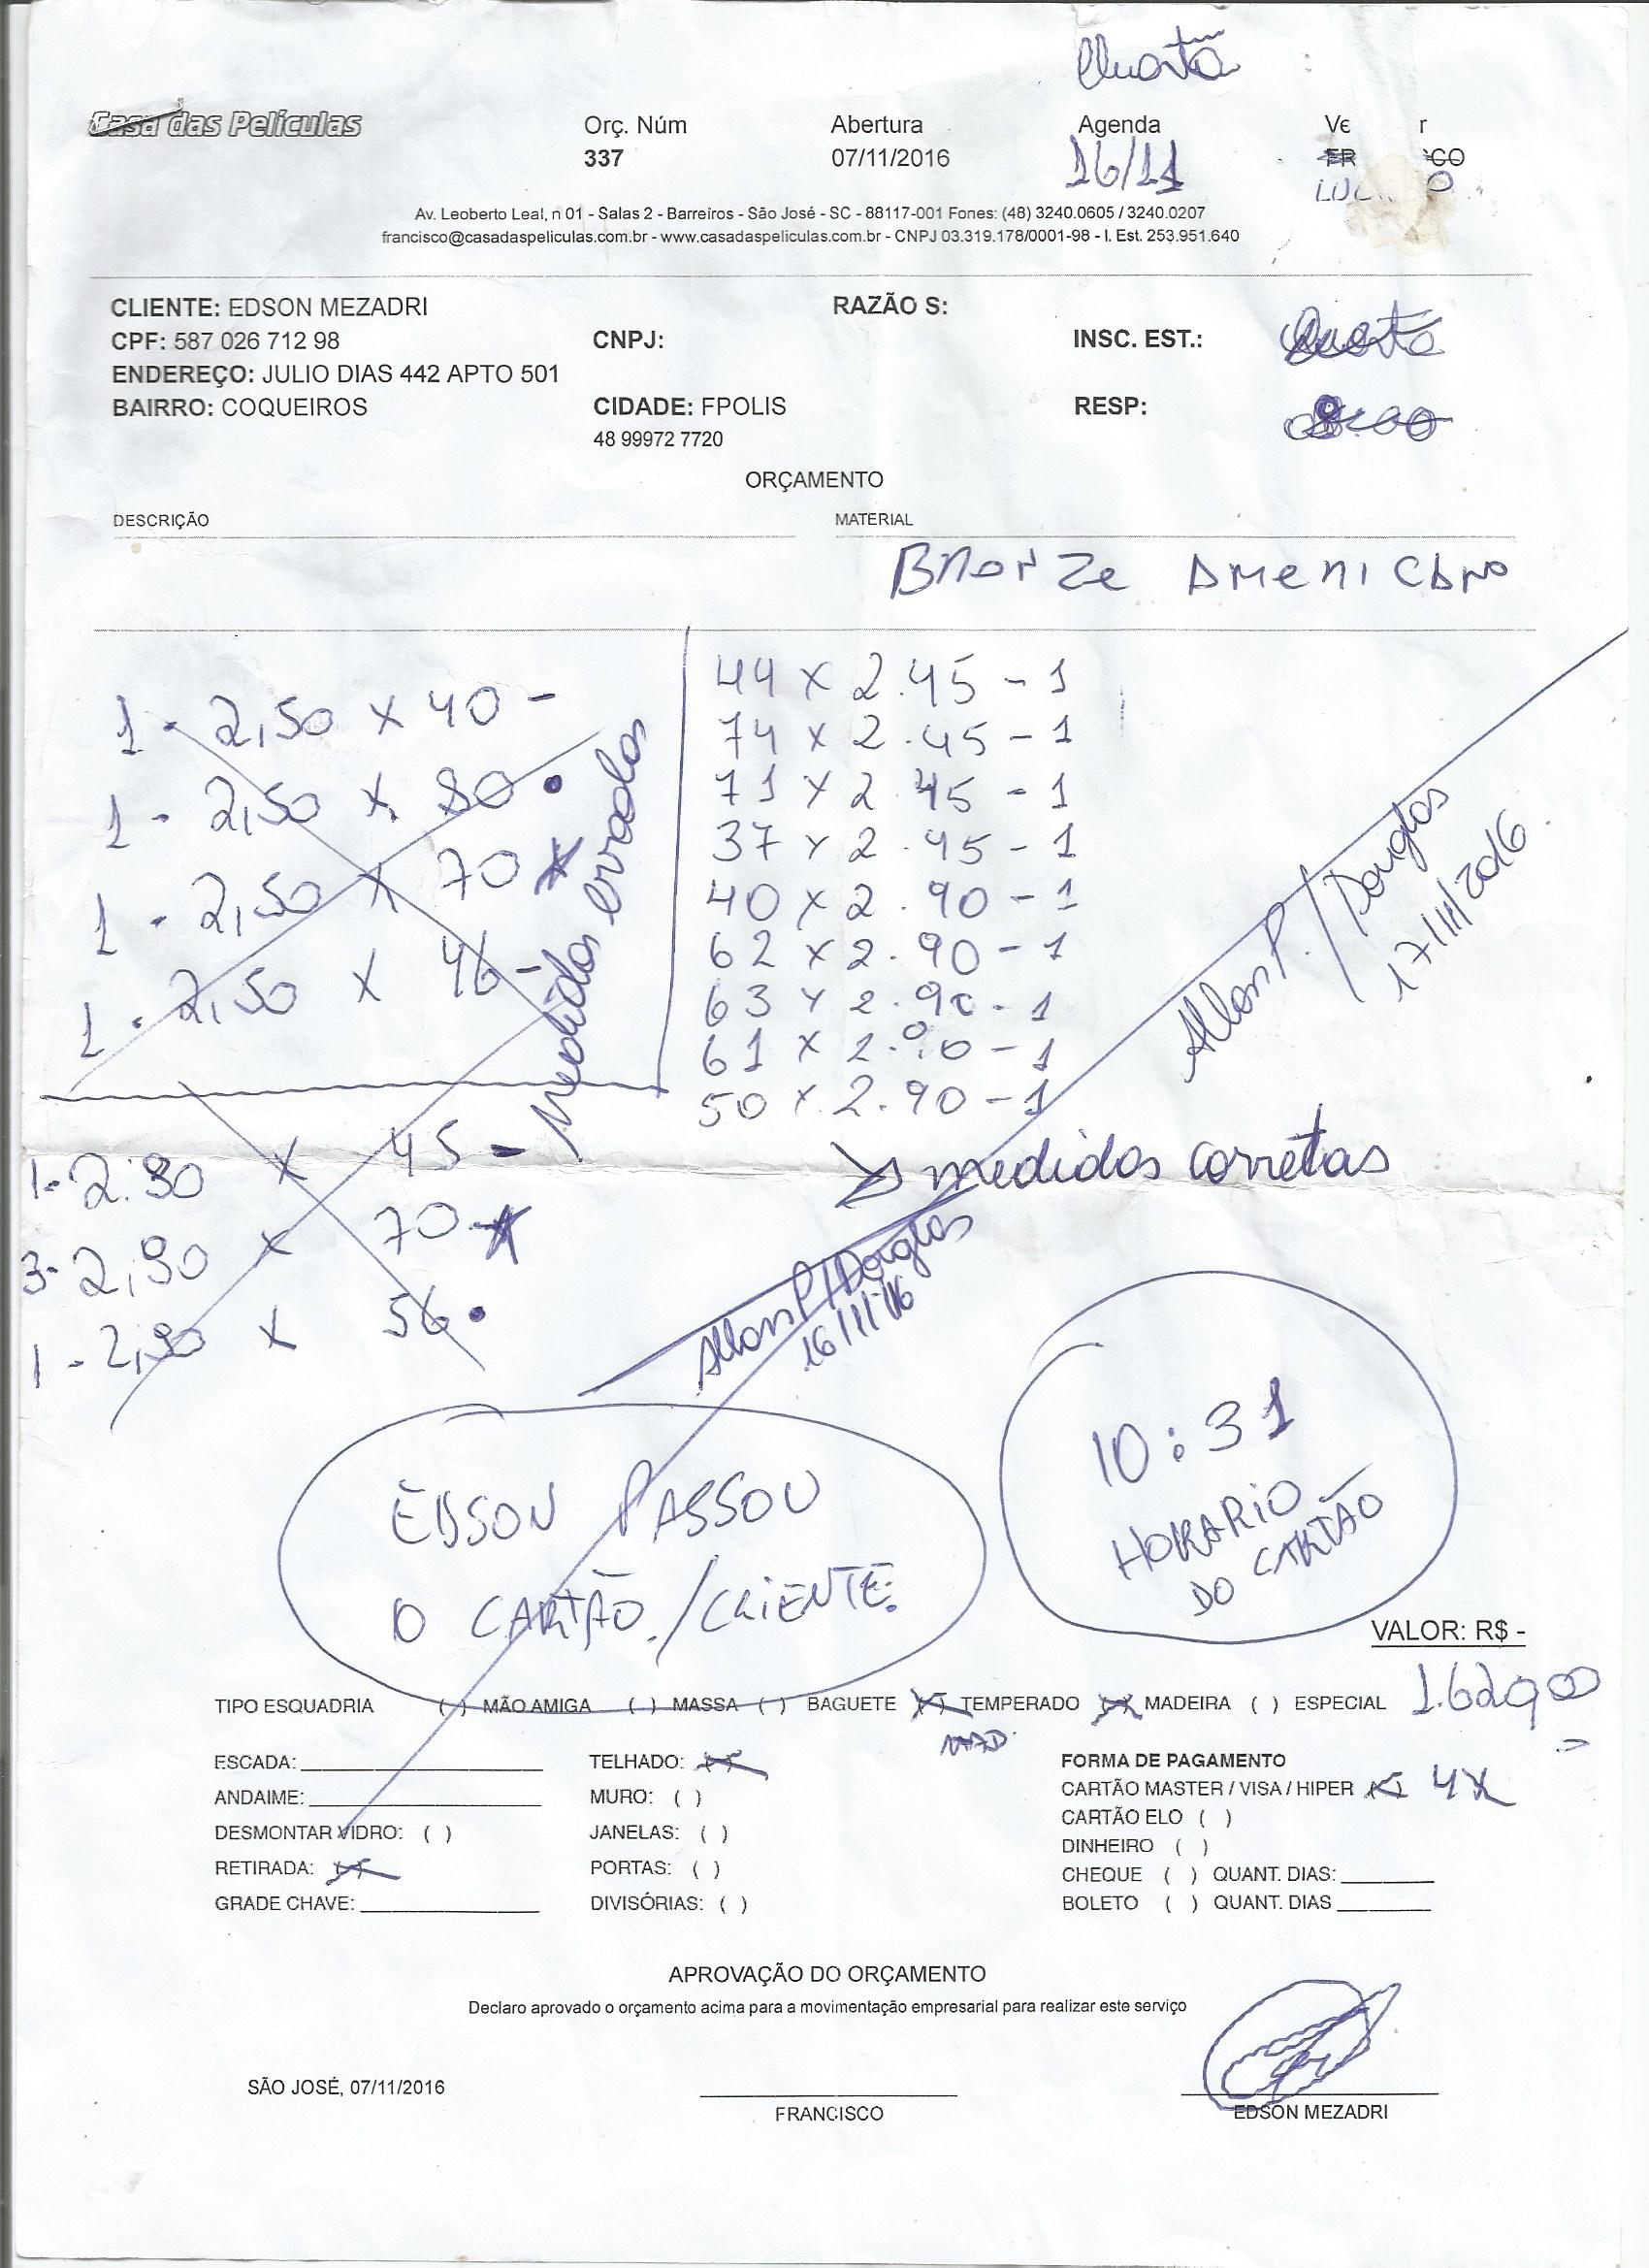 Quarta
Casa das Películas
Orç. Núm Abertura Agenda
337 07/11/2016 16/11
Av. Leoberto Leal, n 01 - Salas 2 - Barreiros - São José - SC - 88117-001 Fones: (48) 3240.0605 / 3240.0207
francisco@casadaspeliculas.com.br - www.casadaspeliculas.com.br - CNPJ 03.319.178/0001-98 - I. Est. 253.951.640
CLIENTE: EDSON MEZADRI RAZÃO S:
CPF: 587 026 712 98 CNPJ: INSC. EST.: Quarta
ENDEREÇO: JULIO DIAS 442 APTO 501
BAIRRO: COQUEIROS CIDADE: FPOLIS RESP:
48 99972 7720
ORÇAMENTO
DESCRIÇÃO MATERIAL
BRONZE AMERICANO
1 - 2,50 x 40 -
1 - 2,50 x 80 •
1 - 2,50 x 70
1 - 2,50 x 46 -
medidas erradas
1 - 2.90 x 45 -
3 - 2,90 x 70
1 - 2,90 x 56 •
44 x 2.45 - 1
74 x 2.45 - 1
71 x 2.45 - 1
37 x 2.45 - 1
40 x 2.90 - 1
62 x 2.90 - 1
63 x 2.90 - 1
61 x 2.90 - 1
50 x 2.90 - 1
medidas corretas
Allan P. / Douglas
17/11/2016
Allan P / Douglas
16/11/16
EDSON PASSOU
O CARTÃO. / CLIENTE.
10:31
HORARIO
DO CARTÃO
VALOR: R$ -
1.629,00
TIPO ESQUADRIA ( ) MÃO AMIGA ( ) MASSA ( ) BAGUETE (X) TEMPERADO (X) MADEIRA ( ) ESPECIAL
ESCADA: TELHADO: (X) FORMA DE PAGAMENTO
ANDAIME: MURO: ( ) CARTÃO MASTER / VISA / HIPER (X) 4X
DESMONTAR VIDRO: ( ) JANELAS: ( ) CARTÃO ELO ( )
DINHEIRO ( )
RETIRADA: (X) PORTAS: ( ) CHEQUE ( ) QUANT. DIAS:
GRADE CHAVE: DIVISÓRIAS: ( ) BOLETO ( ) QUANT. DIAS
APROVAÇÃO DO ORÇAMENTO
Declaro aprovado o orçamento acima para a movimentação empresarial para realizar este serviço
SÃO JOSÉ, 07/11/2016
FRANCISCO EDSON MEZADRI